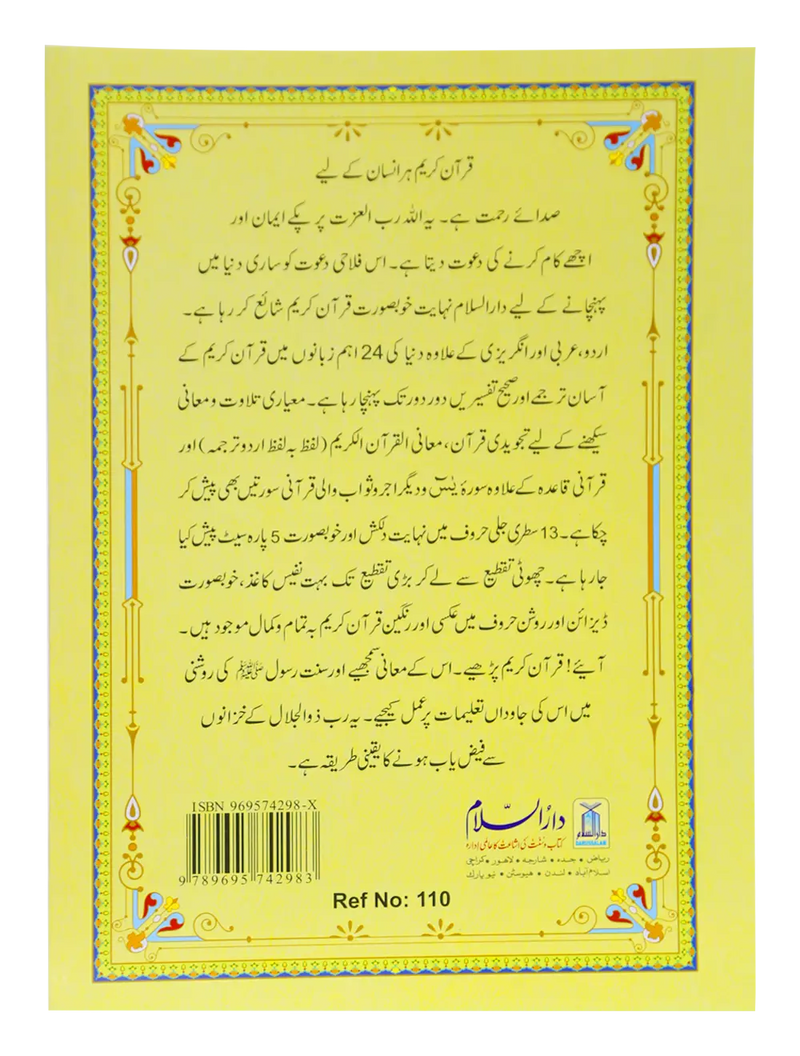 قرآن کریم ہر انسان کے لیے
صدائے رحمت ہے۔ یہ اللہ رب العزت پر پکے ایمان اور
اچھے کام کرنے کی دعوت دیتا ہے۔ اس فلاحی دعوت کو ساری دنیا میں
پہنچانے کے لیے دارالسلام نہایت خوبصورت قرآن کریم شائع کر رہا ہے۔
اردو، عربی اور انگریزی کے علاوہ دنیا کی 24 اہم زبانوں میں قرآن کریم کے
آسان ترجمے اور صحیح تفسیریں دور دور تک پہنچا رہا ہے۔ معیاری تلاوت و معانی
سیکھنے کے لیے تجویدی قرآن، معانی القرآن الکریم (لفظ بہ لفظ اردو ترجمہ) اور
قرآنی قاعدہ کے علاوہ سورۂ یٰسٓ و دیگر اجر و ثواب والی قرآنی سورتیں بھی پیش کر
چکا ہے۔ 13 سطری جلی حروف میں نہایت دلکش اور خوبصورت 5 پارہ سیٹ پیش کیا
جا رہا ہے۔ چھوٹی تقطیع سے لے کر بڑی تقطیع تک بہت نفیس کاغذ، خوبصورت
ڈیزائن اور روشن حروف میں عکسی اور رنگین قرآن کریم بہ تمام و کمال موجود ہیں۔
آیئے! قرآن کریم پڑھیے۔ اس کے معانی سمجھیے اور سنت رسول ﷺ کی روشنی
میں اس کی جاوداں تعلیمات پر عمل کیجیے۔ یہ رب ذوالجلال کے خزانوں
سے فیض یاب ہونے کا یقینی طریقہ ہے۔
ISBN 969574298-X
9 789695 742983
دارُالسّلام
کتاب و سنت کی اشاعت کا عالمی ادارہ
ریاض • جدہ • شارجہ • لاہور • کراچی
اسلام آباد • لندن • ہیوسٹن • نیو یارک
دارالسلام
DARUSSALAM
Ref No: 110